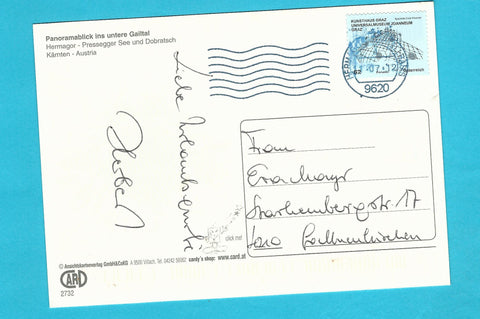 Panoramablick ins untere Gailtal
Hermagor - Pressegger See und Dobratsch
Kärnten - Austria
KUNSTHAUS GRAZ
UNIVERSALMUSEUM JOANNEUM
GRAZ
62
Österreich
9620
Liebe Urlaubsgrüße
Hubert
Frau
Eva Mayr
Starhembergstr. 17
click me!
© Ansichtskartenverlag GmbH&CoKG A 9500 Villach, Tel. 04242 58062 cardy's shop: www.card.at
CARD
2732